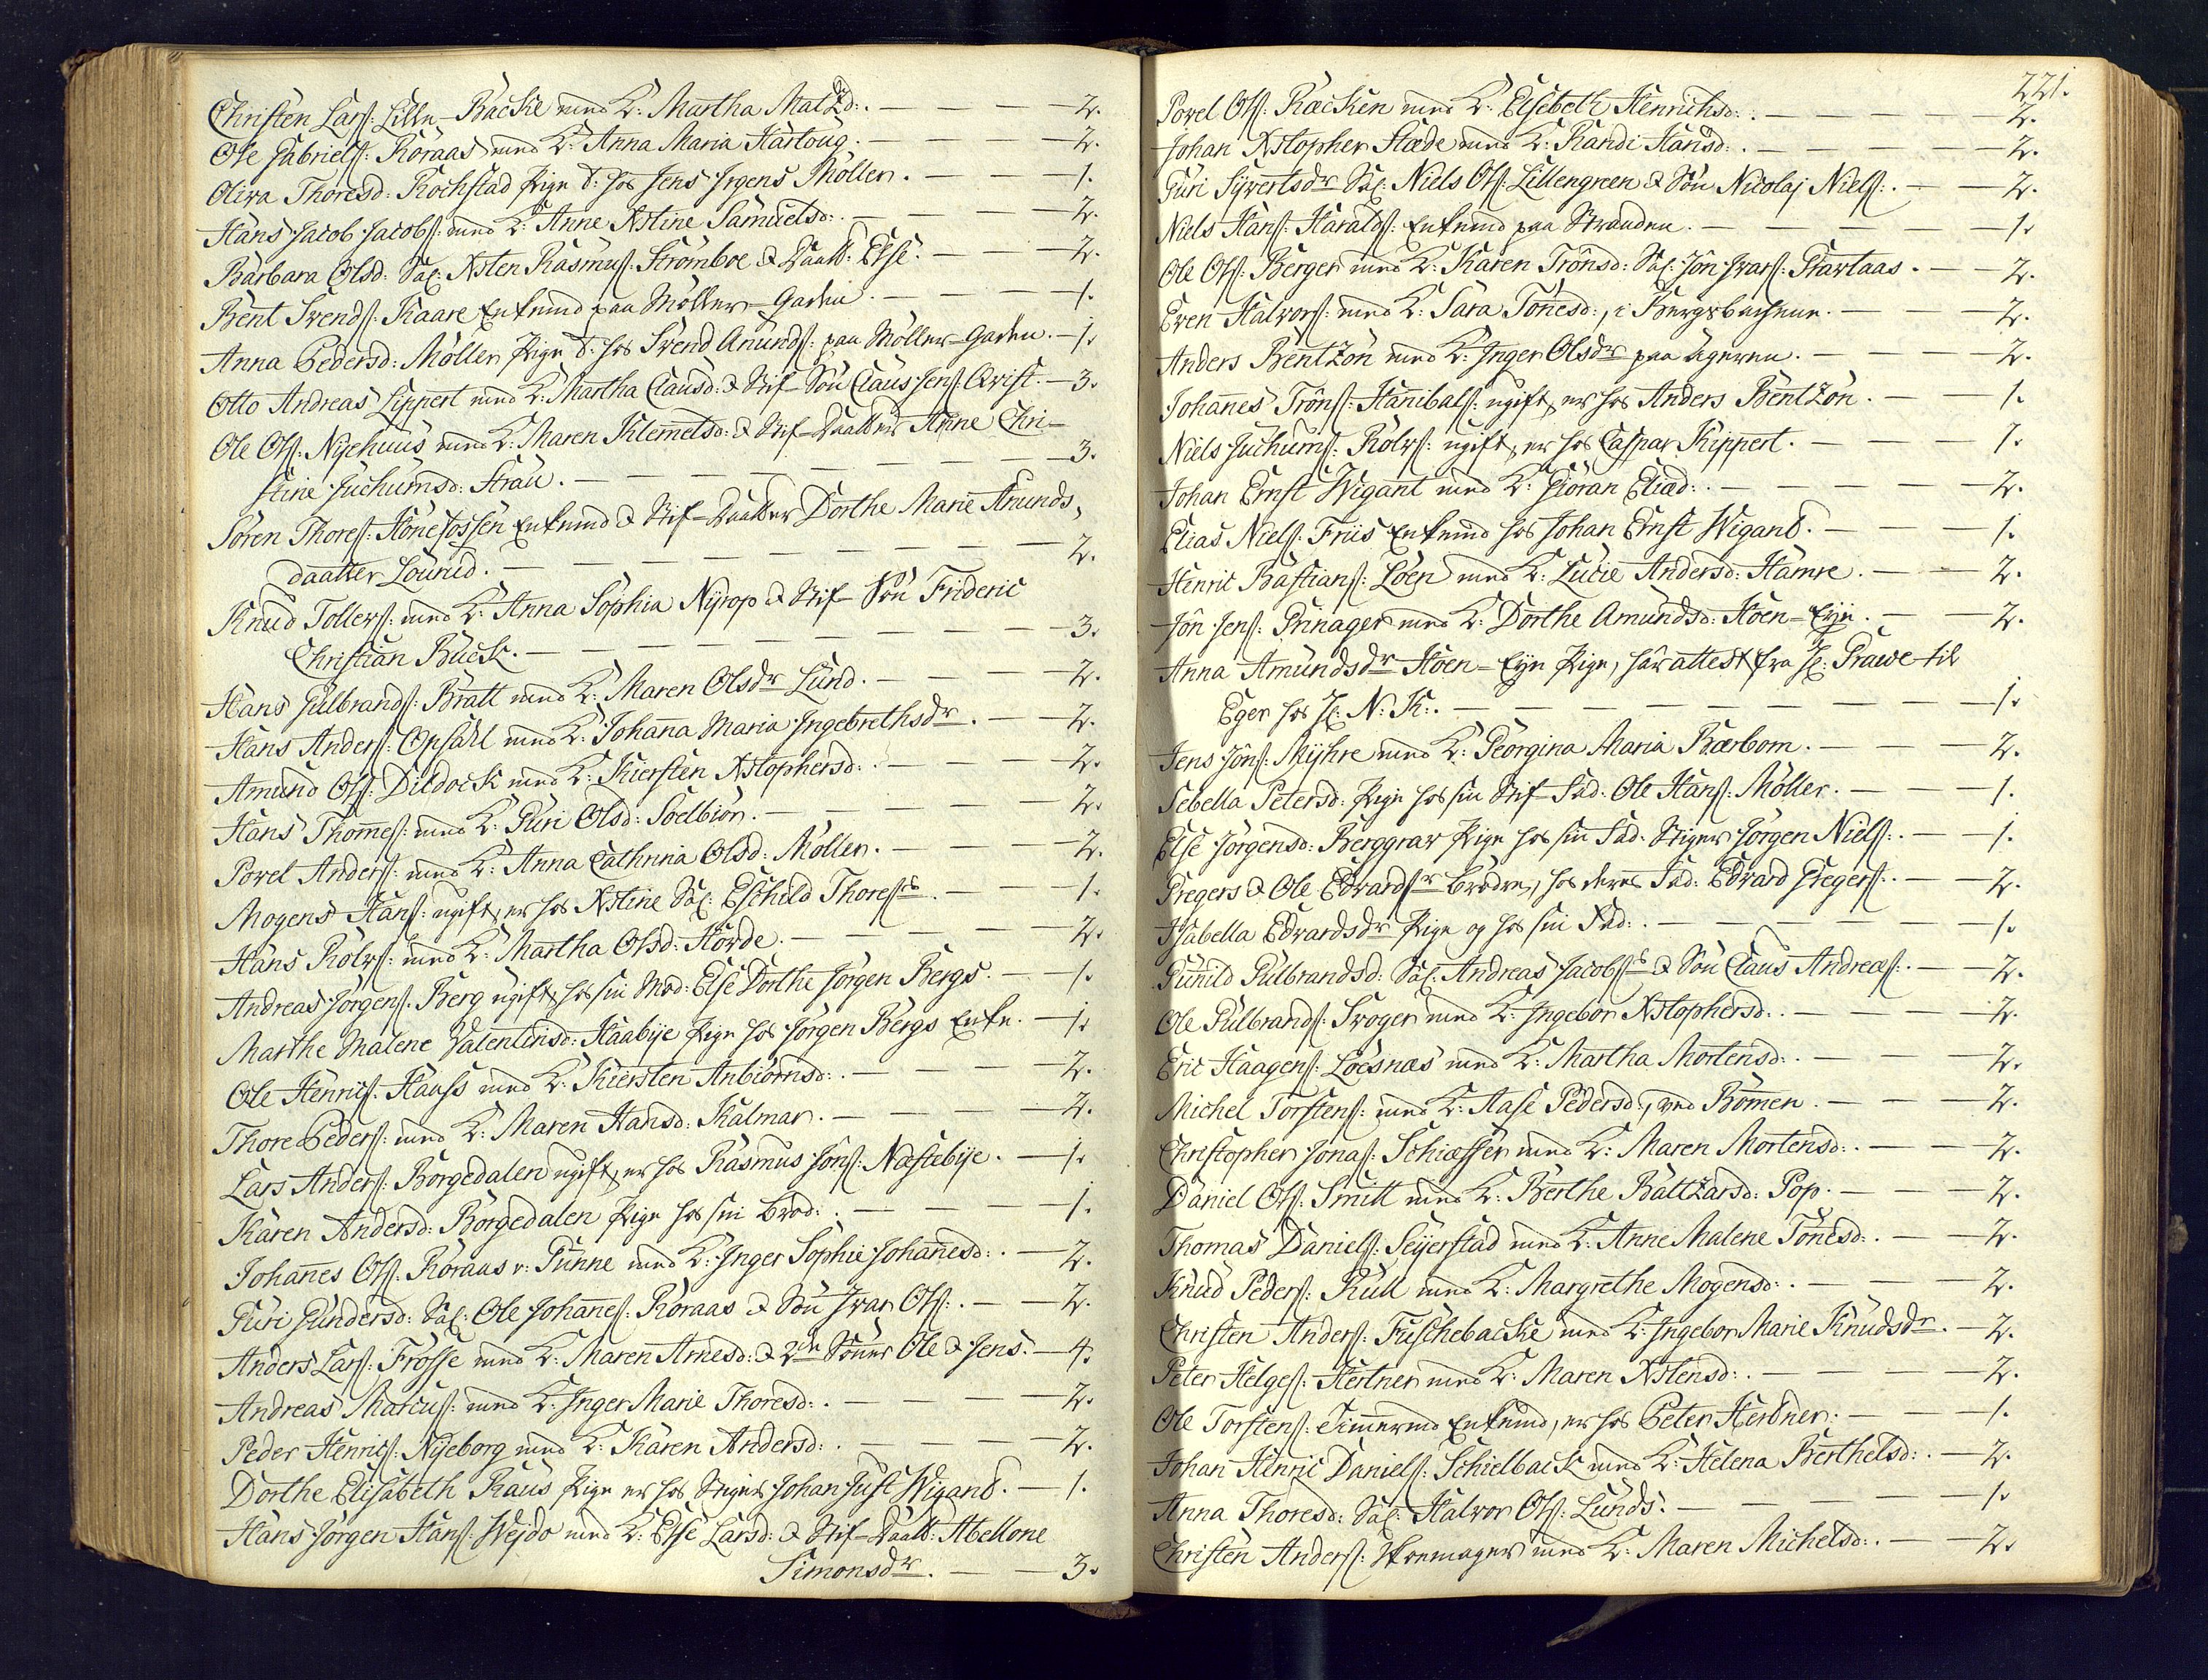 Christen Lars: Lille-Backe med K: Martha Matzd:. — — — 2.
Ole Gabriels: Röraas med K: Anna Maria Hartoug. — — — 2.
Oliva Thoresd: Rochstad Pige d: hos Jens Jrgens Möller. — — 1.
Hans Jacob Jacobs: med K: Anne Xstine Samuelsd:. — — — 2.
Barbara Olsd: Sal: Xsten Rasmus: Strömboe & Daatt: Else. — — 2.
Bent Svends: Kaare Enkemd paa Möller-Garden. — — — 1.
Anna Pedersd: Möller Pige d: hos Svend Amunds: paa Möller-Garden. — 1.
Otto Andreas Lippert med K: Martha Clausd: & Stif-Sön Claus Jens: Qvist. — 3.
Ole Ols: Nyehuus med K: Maren Klemetsd: & Stif-Daatter Anne Chri-
stine Juchumsd: Strau. — — — — — — 3.
Sören Thores: Hönefossen Enkemd & Stif-Daatter Dorthe Marie Amunds,
daatter Lourud. — — — — — — 2.
Knud Tollers: med K: Anna Sophia Nyrop & Stif-Sön Frideric
Christian Buck. — — — — — — 3.
Hans Gulbrands: Bratt med K: Maren Olsdr Lund. — — — 2.
Hans Anders: Opsahl med K: Johanna Maria Ingebrethsdr. — — 2.
Amund Ols: Dildock med K: Kiersten Xstophersd:. — — — 2.
Hans Thommes: med K: Guri Olsd: Soelbiör. — — — 2.
Povel Anders: med K: Anna Cathrina Olsd: Möller. — — — 2.
Mogens Hans: ugift, er hos Xstine Sal: Eschild Thores. — — 1.
Hans Rolvs: med K: Martha Olsd: Hörde. — — — 2.
Andreas Jörgens: Berg ugift, hos sin Mod: Else Dorthe Jörgen Bergs. — 1.
Marthe Malene Valentinsd: Haabye Pige hos Jörgen Bergs Enke. — 1.
Ole Henrics: Hauss med K: Kiersten Anbiörnsd:. — — — 2.
Thore Peders: med K: Maren Hansd: Kalmar. — — — 2.
Lars Anders: Borgedalen ugift, er hos Rasmus Jöns: Næstebye. — 1.
Karen Andersd: Borgedalen Pige hos sin Brod:. — — — 1.
Johannes Ols: Röraas v: Gunne med K: Inger Sophie Johannesd:. — 2.
Guri Gundersd: Sal: Ole Johannes: Röraas & Sön Ivar Ols:. — — 2.
Anders Lars: Frosse med K: Maren Arnesd: & 2de Sönner Ole & Jens. — 4.
Andreas Marcus: med K: Inger Marie Thoresd:. — — — 2.
Peder Henrics: Nyeborg med K: Karen Andersd:. — — — 2.
Dorthe Elisabeth Raus Pige er hos Stiger Johan Just Wigand. — 1.
Hans Jörgen Hans: Wejdo med K: Else Larsd: & Stif-Daatt: Abellone
Simonsdr. — — 3.
221.
Povel Ols: Racken med K: Elsebeth Henrichsd:. — — — 2.
Johan Xstopher Hæde med K: Randi Hansd:. — — — 2.
Guri Syvertsdr Sal: Niels Ols: Lillengreen & Sön Nicolaj Niels:. — — 2.
Niels Hans: Haralds: Enkemd paa Stranden. — — — 1.
Ole Ols: Berger med K: Karen Trönsd: Sal: Jön Ivars: Gravlaas. — — 2.
Even Halvors: med K: Sara Tönnesd:, i Bergsbachene. — — 2.
Anders Bentzön med K: Inger Olsdr paa Ageren. — — — 2.
Johannes Tröns: Hannibals: ugift, er hos Anders Bentzön. — — 1.
Niels Juchums: Rolvs: ugift, er hos Caspar Kippert. — — 1.
Johan Ernst Wigant med K: Giöran Eliæd:. — — — 2.
Elias Niels: Friis Enkemd hos Johan Ernst Wigand. — — — 1.
Henric Bastians: Löen med K: Lucie Andersd: Hamre. — — — 2.
Jön Jens: Prinager med K: Dorthe Amundsd: Hoen-Eye. — — 2.
Anna Amundsdr Hoen-Eye Pige, har attest fra Hr: Grawe til
Eger hos Hr: N: K:. — — — — — — 1.
Jens Jöns: Myhre med K: Georgina Maria Bærbom. — — — 2.
Sebella Petersd: Pige hos sin Stif-Fad: Ole Hans: Möller. — — 1.
Else Jörgensd: Berggrav Pige hos sin Fad: Stiger Jörgen Niels:. — — 1.
Gregers & Ole Edvardsr Brödre, hos deres Fad: Edvard Gregers:. — — 2.
Isabella Edvardsdr Pige og hos sin Fad:. — — — 1.
Gunild Gulbrandsd: Sal: Andreas Jacobs & Sön Claus Andreæs:. — 2.
Ole Gulbrands: Svoger med K: Ingebor Xstophersd:. — — — 2.
Eric Haagens: Loesnæs med K: Martha Mortensd:. — — — 2.
Michel Torstens: med K: Aase Pedersd:, ved Bommen. — — — 2.
Christopher Jonas: Schiæsser med K: Maren Mortensd:. — — — 2.
Daniel Ols: Smitt med K: Berthe Baltzarsd: Pop. — — — 2.
Thomas Daniels: Seyerstad med K: Anne Malene Tönnesd:. — — 2.
Knud Peders: Kull med K: Margrethe Mogensd:. — — — 2.
Christen Anders: Fuschebacke med K: Ingebor Marie Knudsdr. — 2.
Peter Helges: Hertner med K: Maren Xstensd:. — — — 2.
Ole Torstens: Timmermd Enkemd, er hos Peter Hertner. — — 1.
Johan Henric Daniels: Schielback med K: Helena Berthelsd:. — 2.
Anna Thoresd: Sal: Halvor Ols: Lunds. — — — 1.
Christen Anders: Skomager med K: Maren Michelsd:. — — 2.